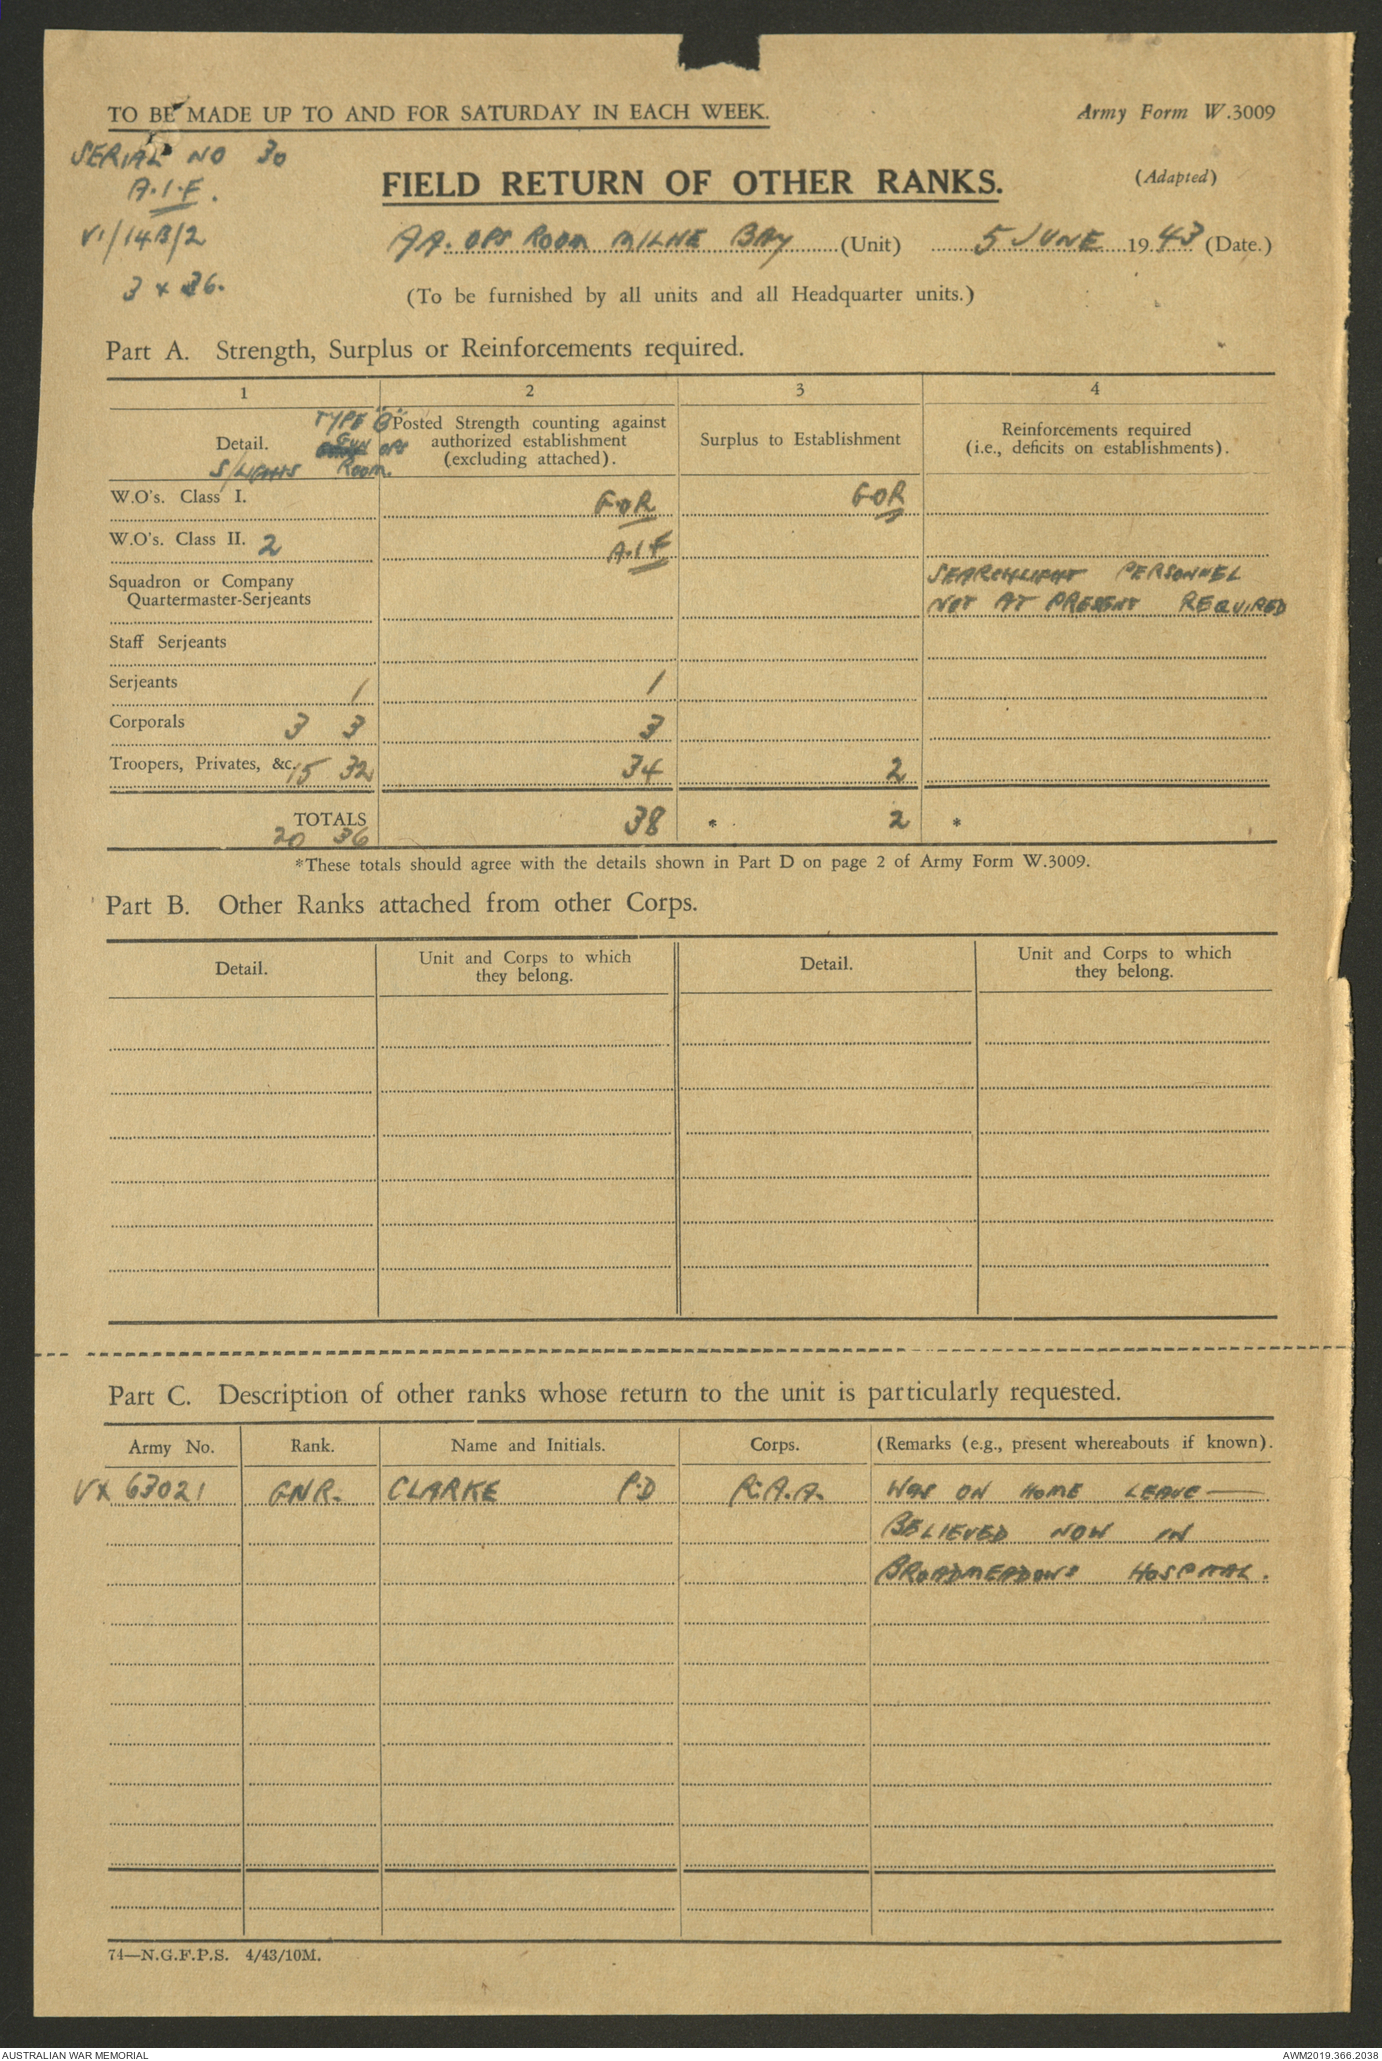 TO BE MADE UP TO AND FOR SATURDAY IN EACH WEEK.
Army Form W.3009
SERIAL NO 30
A.I.F.
FIELD RETURN OF OTHER RANKS.
(Adapted)
VI/14B/2
AA. OPS ROOM MILNE BAY (Unit) 5 JUNE 1943 (Date.)
3 x 36.
(To be furnished by all units and all Headquarter units.)
Part A. Strength, Surplus or Reinforcements required.
1 2 3 4
Detail.
S/LIGHTS
TYPE "B"
GUN OPS
ROOM.
Posted Strength counting against
authorized establishment
(excluding attached).
Surplus to Establishment
Reinforcements required
(i.e., deficits on establishments).
W.O's. Class I. FOR FOR
W.O's. Class II. 2 A.I.F
Squadron or Company
Quartermaster-Serjeants
SEARCHLIGHT PERSONNEL
NOT AT PRESENT REQUIRED
Staff Serjeants
Serjeants 1 1
Corporals 3 3 3
Troopers, Privates, &c. 15 32 34 2
TOTALS 38 * 2 *
20 36
*These totals should agree with the details shown in Part D on page 2 of Army Form W.3009.
Part B. Other Ranks attached from other Corps.
Detail.
Unit and Corps to which
they belong.
Detail.
Unit and Corps to which
they belong.
Part C. Description of other ranks whose return to the unit is particularly requested.
Army No. Rank. Name and Initials. Corps. (Remarks (e.g., present whereabouts if known).
VX 63021 GNR. CLARKE P.D R.A.A. WAS ON HOME LEAVE —
BELIEVED NOW IN
BROADMEADOWS HOSPITAL.
74—N.G.F.P.S. 4/43/10M.
AUSTRALIAN WAR MEMORIAL
AWM2019.366.2038